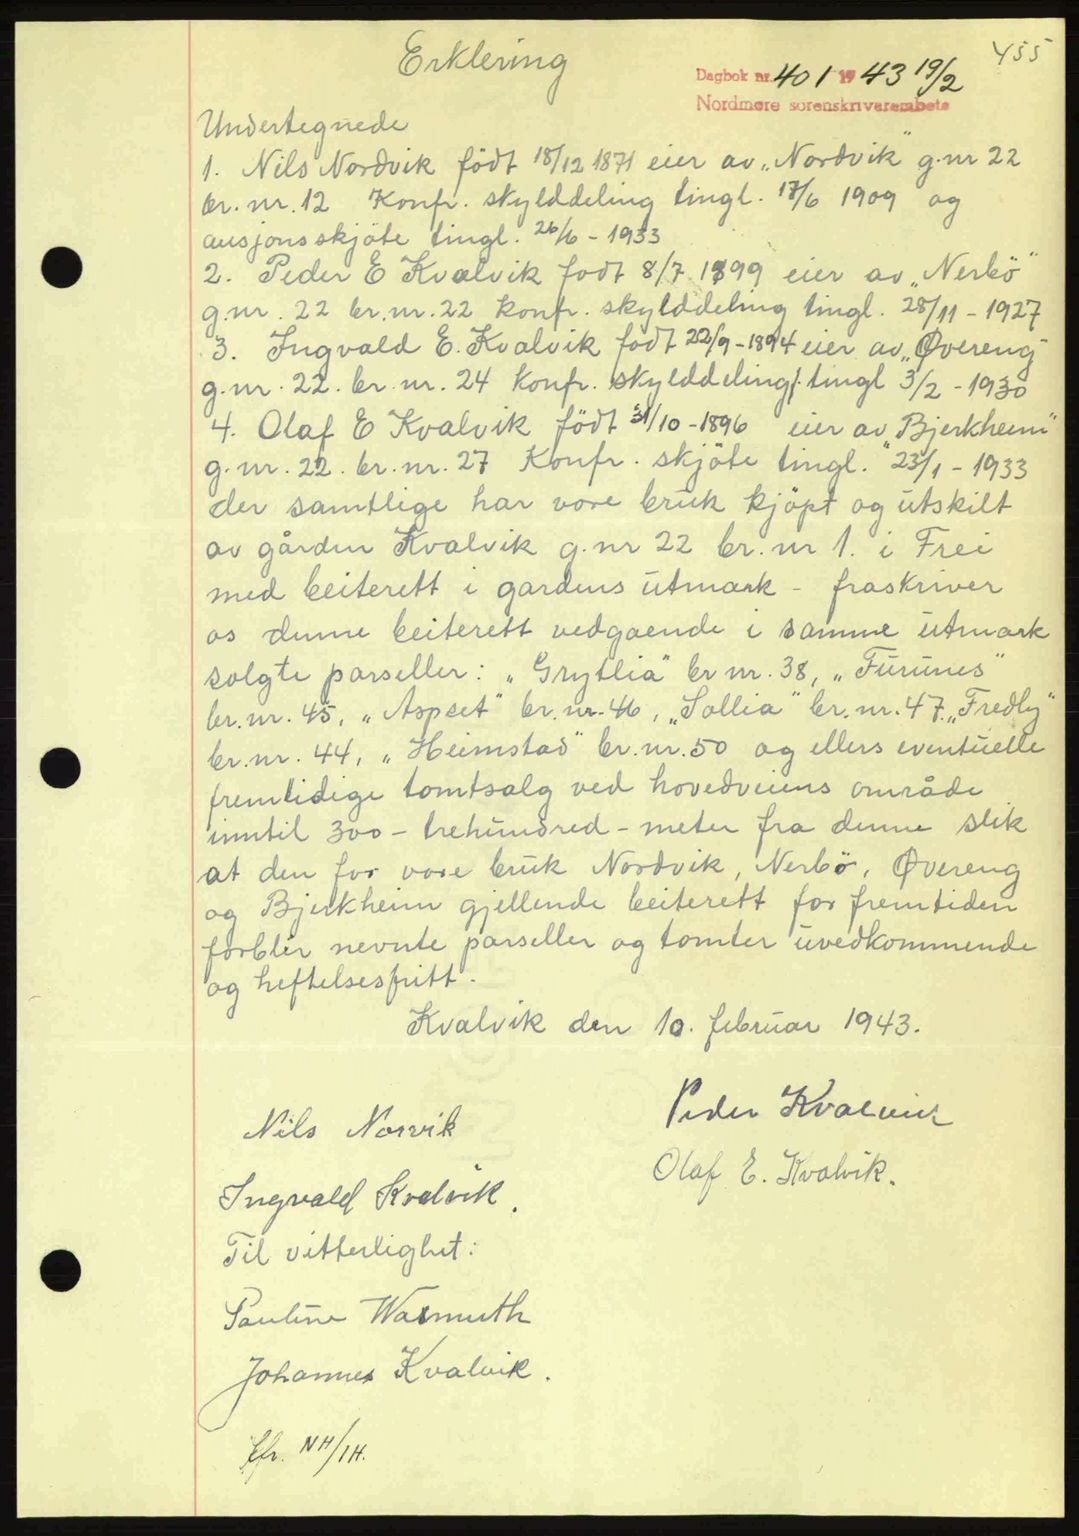 455
Erklering
Dagbok nr. 401 1943 19/2
Nordmøre sorenskriverembete
Undertegnede
1. Nils Nordvik födt 18/12 1871 eier av „Nordvik" g.nr 22
br. nr. 12 Konfr. skylddeling tingl. 17/6 1909 og
ausjonsskjöte tingl. 26/6 - 1933
2. Peder E Kvalvik födt 8/7 1899 eier av „Nerbö"
g.nr. 22 br.nr. 22 konfr. skylddeling tingl. 28/11 - 1927
3. Ingvald E. Kvalvik födt 22/9 - 1894 eier av „Øvereng"
g.nr. 22. br. nr. 24 konfr. skylddeling tingl 3/2 - 1930
4. Olaf E Kvalvik födt 31/10 - 1896 eier av „Bjerkheim"
g.nr. 22. br. nr. 27 Konfr. skjöte tingl. 23/1 - 1933
der samtlige har vore bruk kjöpt og utskilt
av gården Kvalvik g.nr 22 br. nr 1. i Frei
med beiterett i gardens utmark - fraskriver
os denne beiterett vedgaende i samme utmark
solgte parseller: „Grytlia" br nr. 38, „Furunes"
br. nr. 45, „Aspset" br. nr. 46, „Sollia" br. nr. 47. „Fredly"
br. nr. 44, „Heimstad" br. nr. 50 og ellers eventuelle
fremtidige tomtsalg ved hovedveiens område
inntil 300 - trehundred - meter fra denne slik
at den for vore bruk Nordvik, Nerbö, Øvereng
og Bjerkheim gjellende beiterett for fremtiden
forblir nevnte parseller og tomter uvedkommende
og heftelsesfritt.
Kvalvik den 10. februar 1943.
Nils Norvik
Peder Kvalvik
Olaf E. Kvalvik.
Ingvald Kvalvik.
Til vitterlighet:
Pauline Warmuth
Johannes Kvalvik.
Efr. NH/IH.